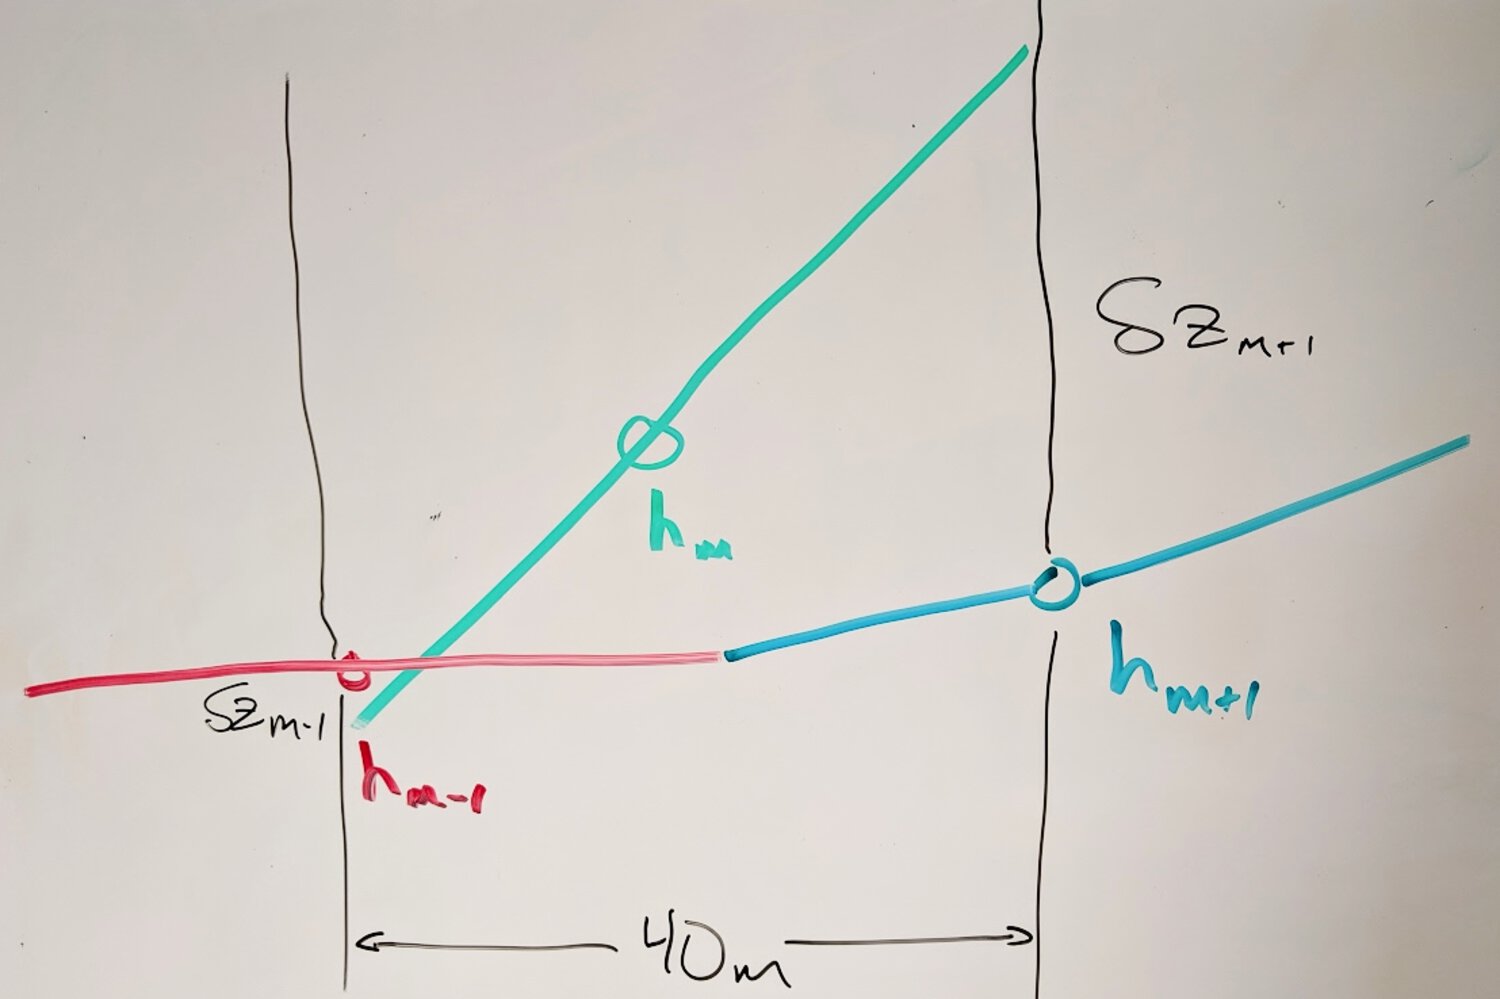 δz m+1
h m
h m+1
δz m-1
h m-1
40m